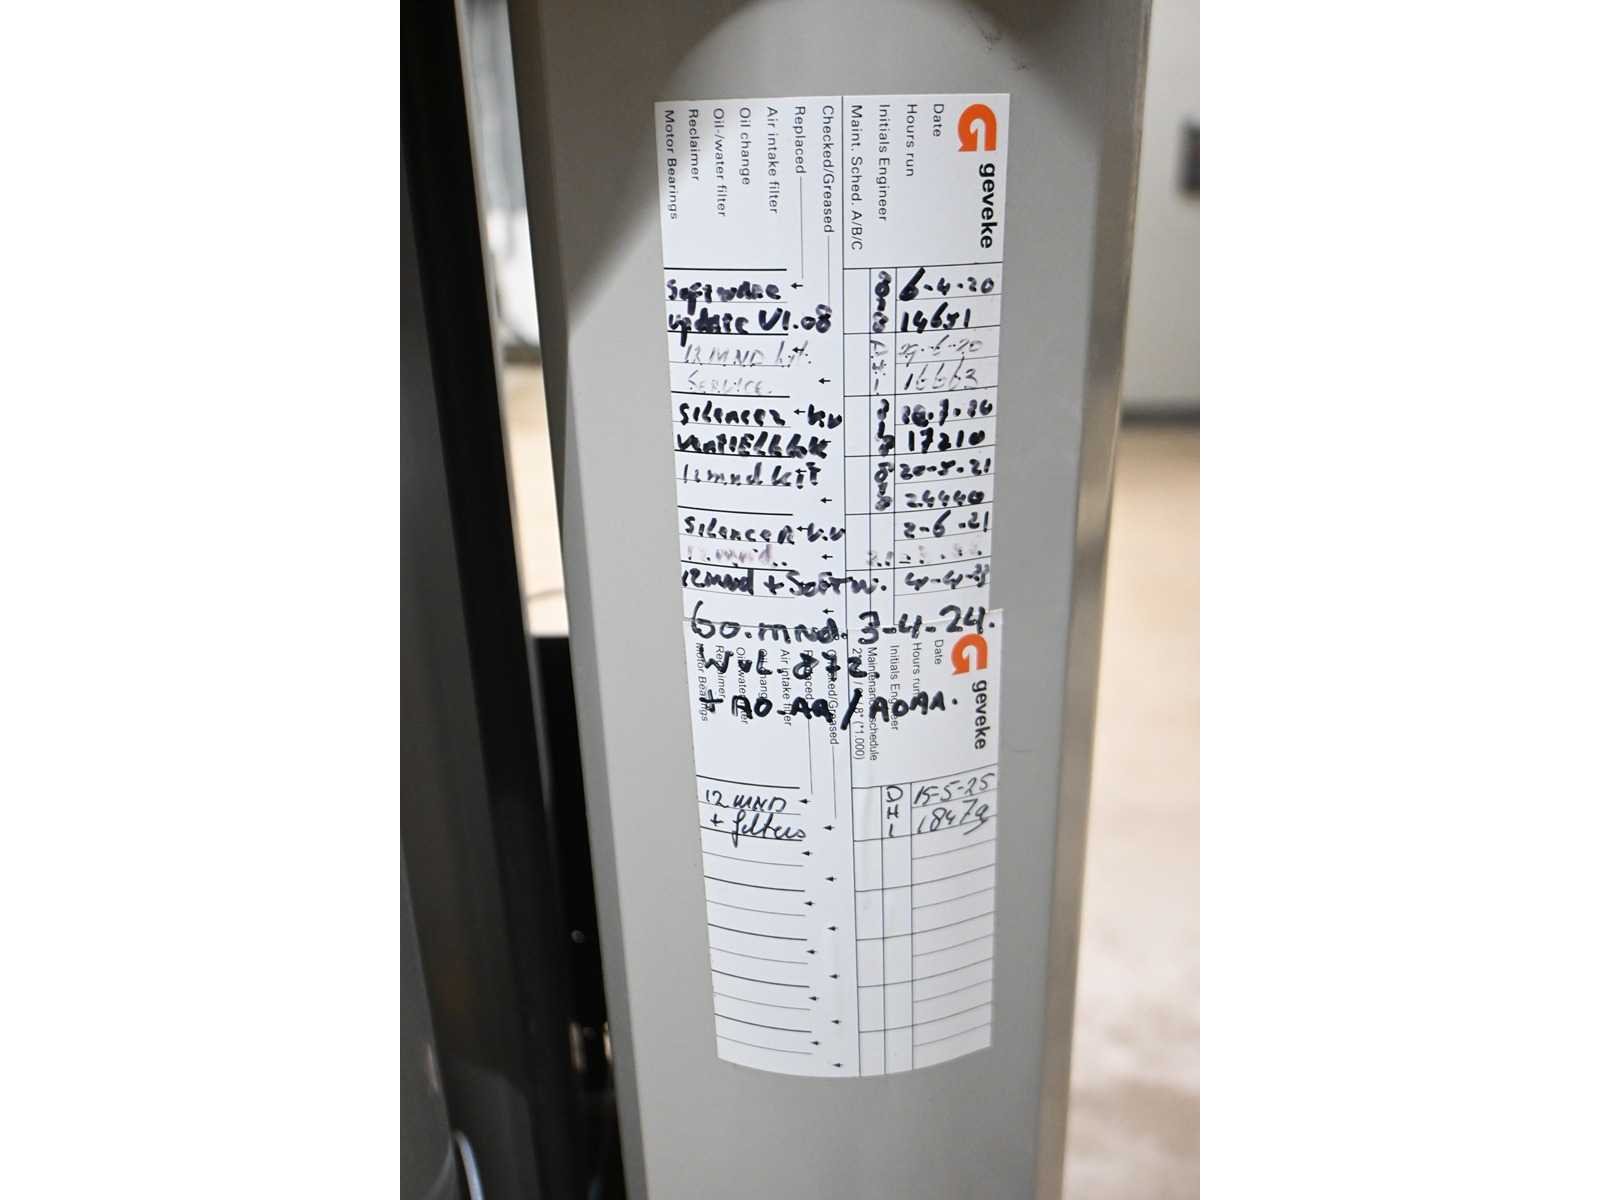 geveke
Date
Hours run
Initials Engineer
Maint. Sched. A/B/C
Checked/Greased
Replaced
Air intake filter
Oil change
Oil-/water filter
Reclaimer
Motor Bearings
Software 6-4-20
update V1.08 14651
12 MND kit.
SERVICE. 16663
Silencer
17210
12mnd kit 20-5-21
24440
Silencer 2-6-21
12 mnd
12mnd + Softw. 4-4-23
60.mnd. 3-4-24.
geveke
Date
Hours run
Initials Engineer
Maintenance schedule
Checked/Greased
Replaced
Air intake filter
Oil change
Oil-/water filter
Reclaimer
Motor Bearings
12 MND 15-5-25
+ filters